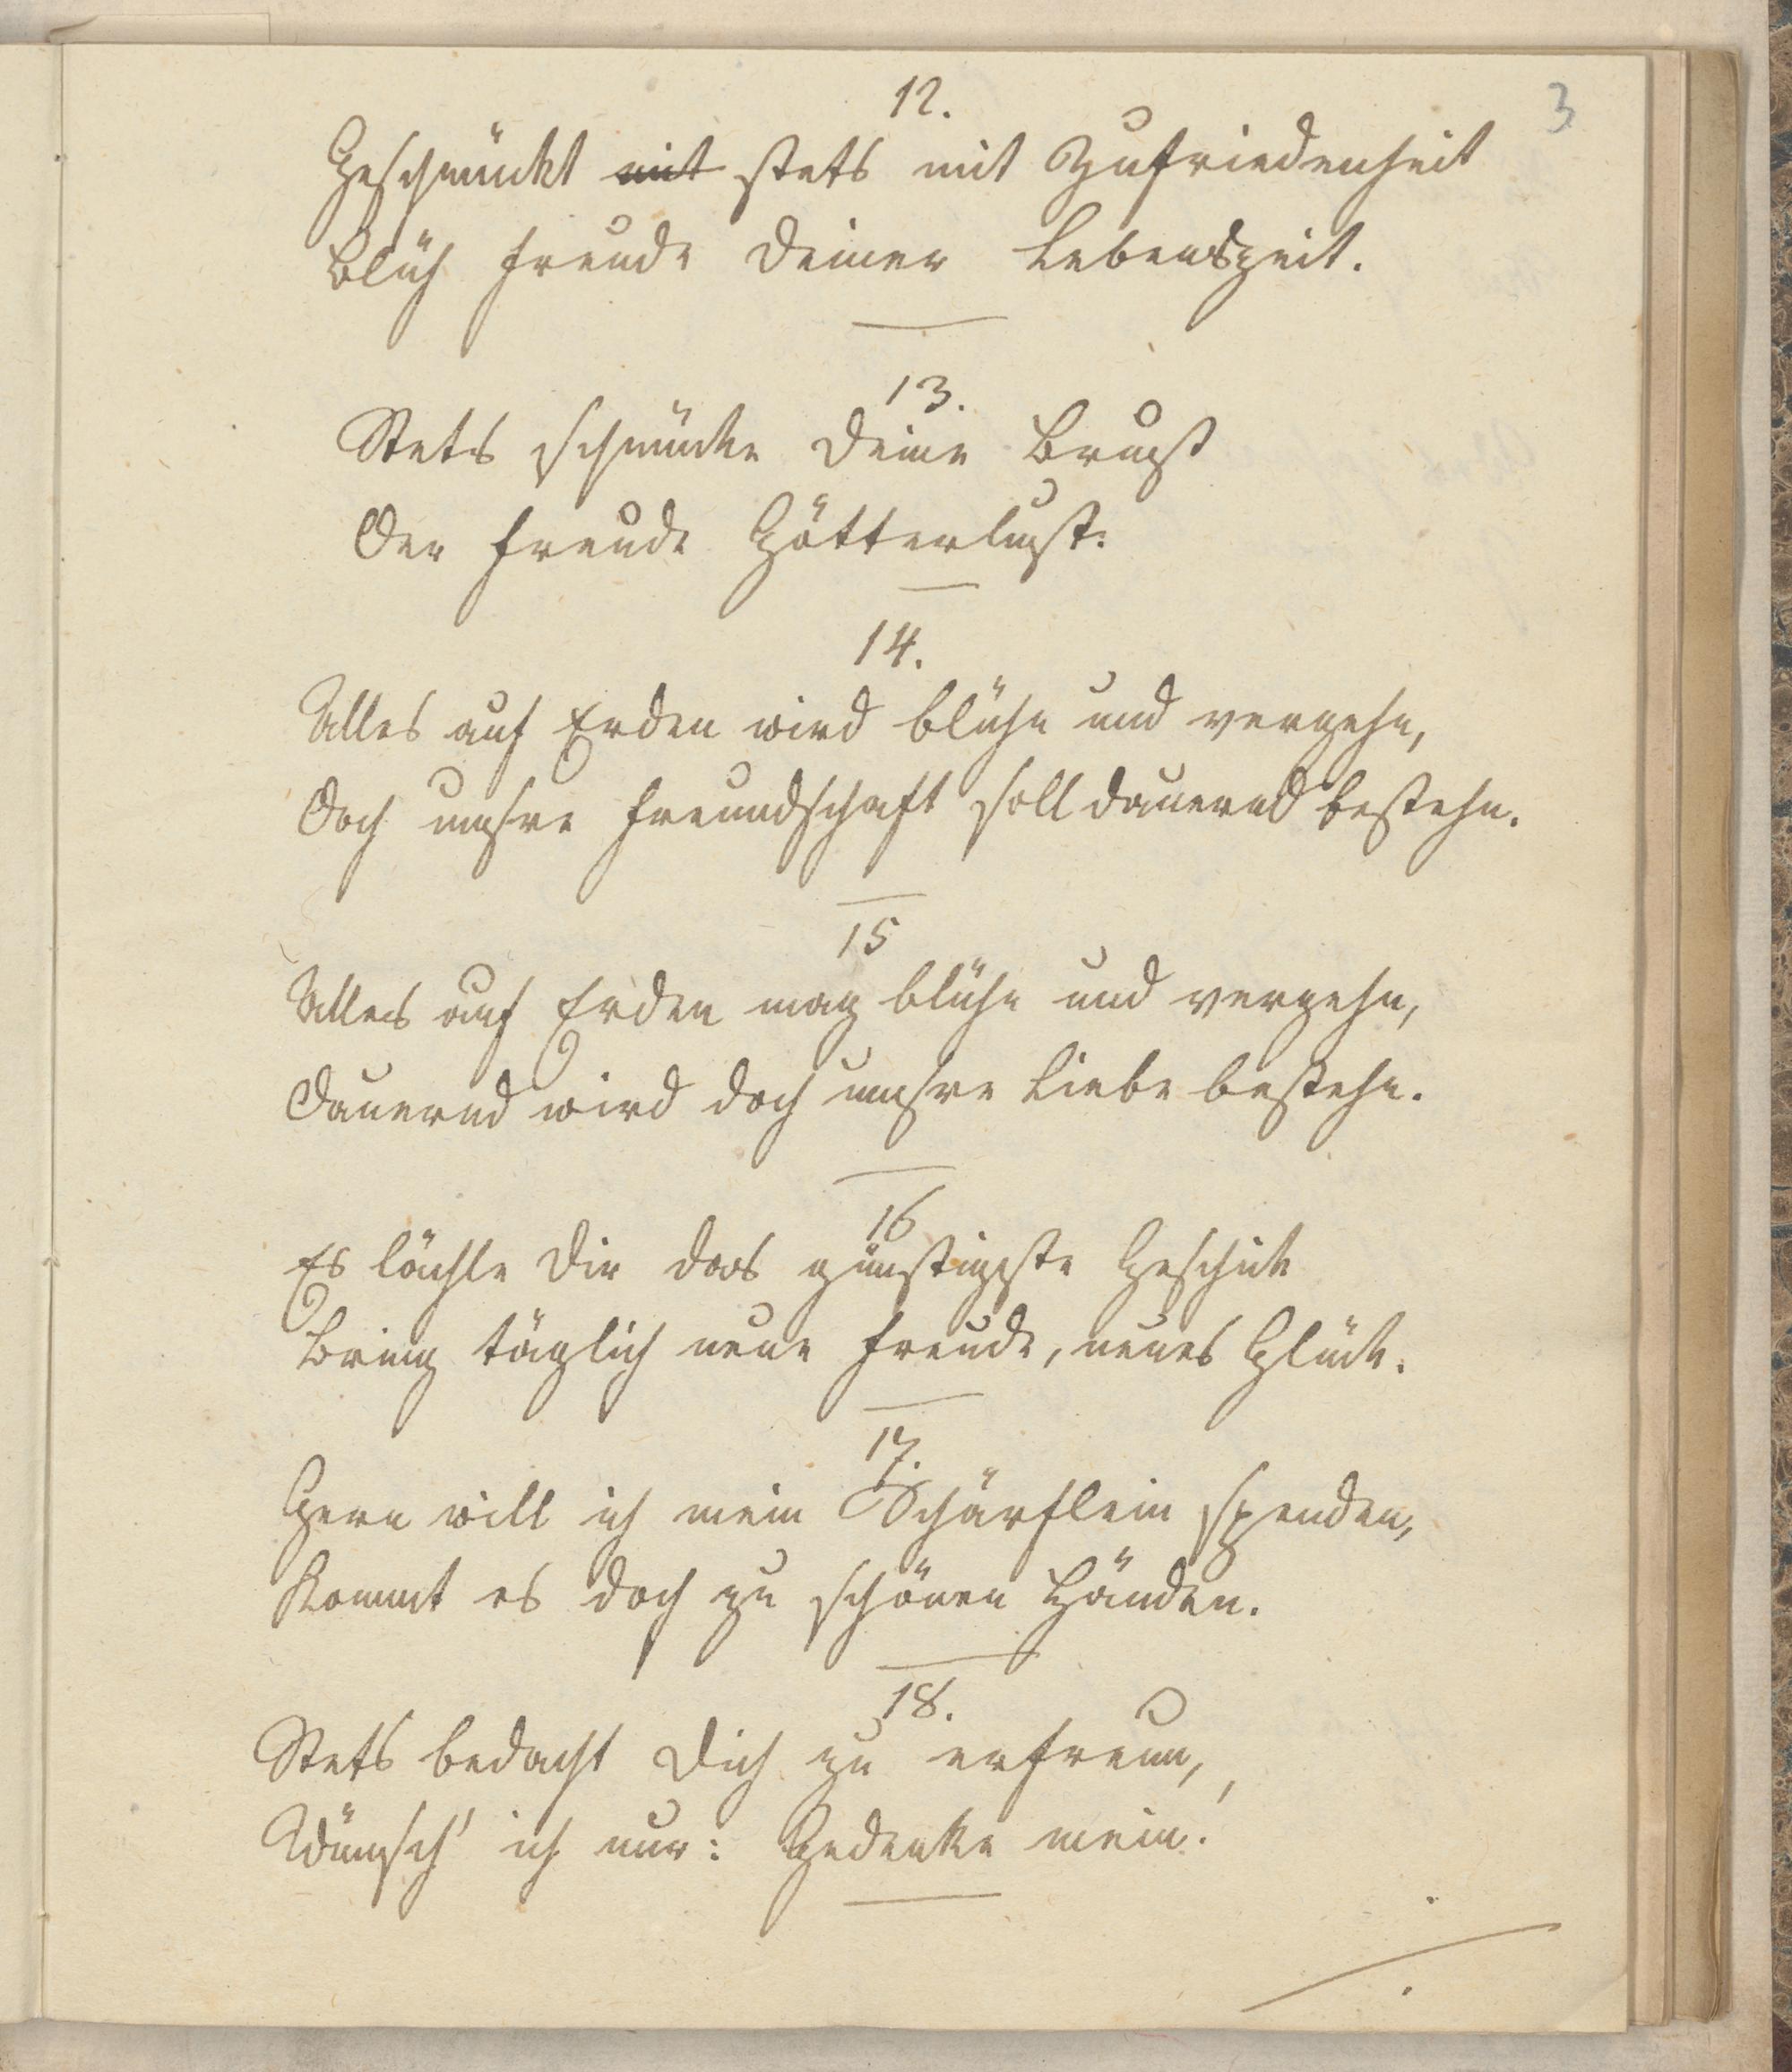 3
12.
Geschmückt mit stets mit Zufriedenheit
Blüh Freude Deiner Lebenszeit.
13.
Stets schmücke Deine Brust
Der Freude Götterlust.
14.
Alles auf Erden wird blühn und vergehn,
Doch unsre Freundschaft soll dauernd bestehn.
15
Alles auf Erden mag blühn und vergehn,
Dauernd wird doch unsre Liebe bestehn.
16
Es lächle Dir das günstigste Geschick
Bring täglich neue Freude, neues Glück.
17.
Gern will ich mein Schärflein spenden,
Kommt es doch zu schönen Händen.
18.
Stets bedacht Dich zu erfreun,
Wünsch' ich nur: Gedenke mein.